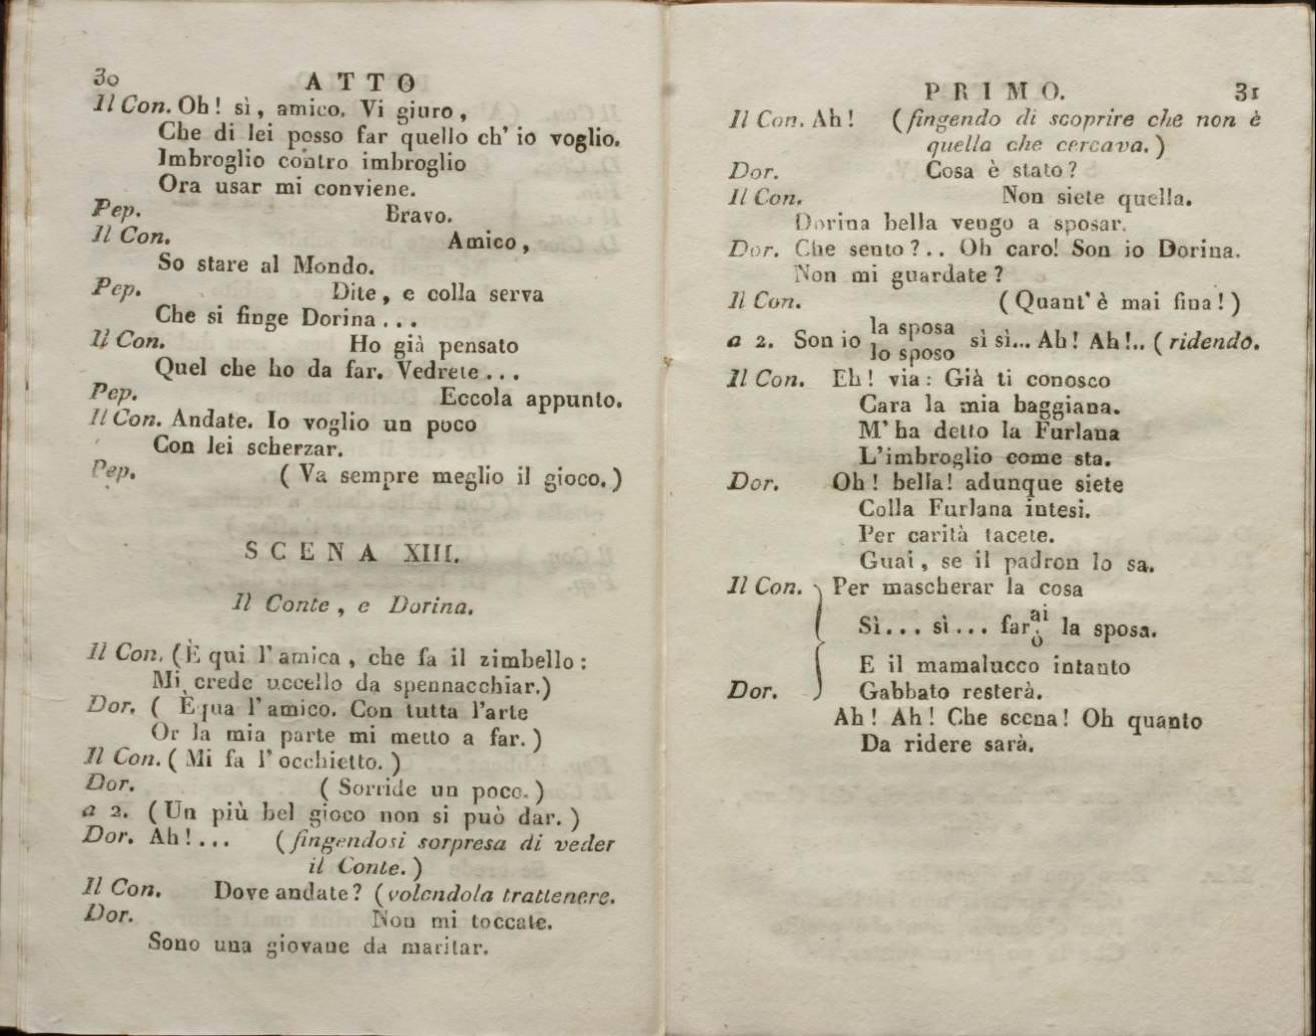 30 ATTO
Il Con. Oh! sì, amico. Vi giuro,
Che di lei posso far quello ch' io voglio.
Imbroglio contro imbroglio
Ora usar mi conviene.
Pep. Bravo.
Il Con. Amico,
So stare al Mondo.
Pep. Dite, e colla serva
Che si finge Dorina...
Il Con. Ho già pensato
Quel che ho da far. Vedrete...
Pep. Eccola appunto.
Il Con. Andate. Io voglio un poco
Con lei scherzar.
Pep. (Va sempre meglio il gioco.)
SCENA XIII.
Il Conte, e Dorina.
Il Con. (È qui l'amica, che fa il zimbello:
Mi crede uccello da spennacchiar.)
Dor. ( È qua l'amico. Con tutta l'arte
Or la mia parte mi metto a far.)
Il Con. (Mi fa l'occhietto.)
Dor. (Sorride un poco.)
a 2. (Un più bel gioco non si può dar.)
Dor. Ah!... (fingendosi sorpresa di veder
il Conte.)
Il Con. Dove andate? (volendola trattenere.
Dor. Non mi toccate.
Sono una giovane da maritar.
PRIMO. 31
Il Con. Ah! (fingendo di scoprire che non è
quella che cercava.)
Dor. Cosa è stato?
Il Con. Non siete quella.
Dorina bella vengo a sposar.
Dor. Che sento?.. Oh caro! Son io Dorina.
Non mi guardate?
Il Con. (Quant'è mai fina!)
a 2. Son io la sposa
lo sposo sì sì... Ah! Ah!.. (ridendo.
Il Con. Eh! via: Già ti conosco
Cara la mia baggiana.
M'ha detto la Furlana
L'imbroglio come sta.
Dor. Oh! bella! adunque siete
Colla Furlana intesi.
Per carità tacete.
Guai, se il padron lo sa.
Il Con. Per mascherar la cosa
Sì... sì... far ai
ò la sposa.
E il mamalucco intanto
Dor. Gabbato resterà.
Ah! Ah! Che scena! Oh quanto
Da ridere sarà.